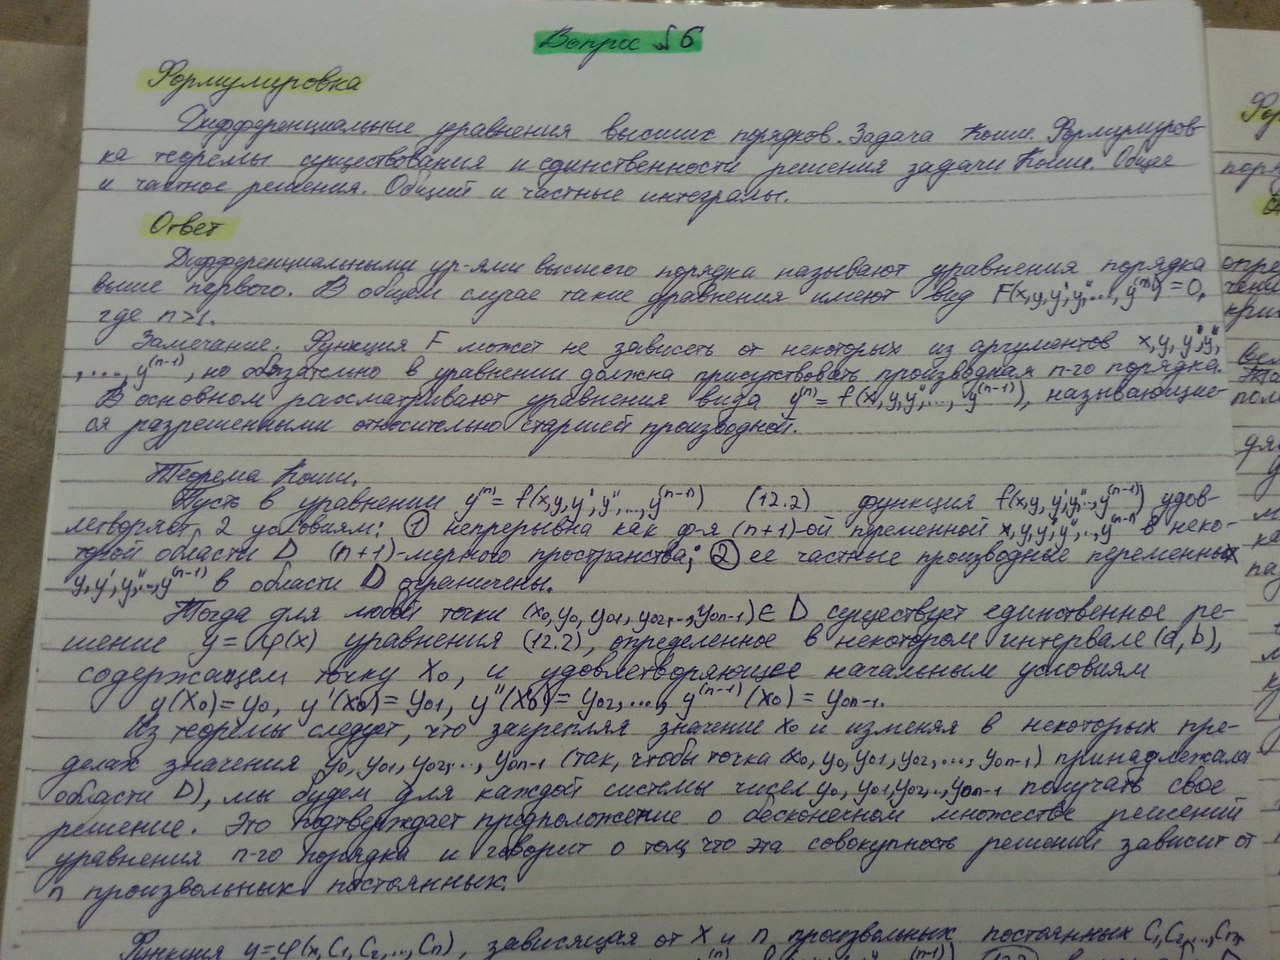 Вопрос №6
Формулировка
Дифференциальные уравнения высших порядков. Задача Коши. Формулиров-
ка теоремы существования и единственности решения задачи Коши. Общее
и частное решения. Общий и частные интегралы.
Ответ
Дифференциальными ур-ями высшего порядка называют уравнения порядка
выше первого. В общем случае такие уравнения имеют вид F(x,y,y',y'',...,y⁽ⁿ⁾)=0,
где n>1.
Замечание. Функция F может не зависеть от некоторых из аргументов x,y,y',y'',
,...,y⁽ⁿ⁻¹⁾, но обязательно в уравнении должна присутствовать производная n-го порядка.
В основном рассматривают уравнения вида y⁽ⁿ⁾=f(x,y,y',...,y⁽ⁿ⁻¹⁾), называющие-
ся разрешенными относительно старшей производной.
Теорема Коши.
Пусть в уравнении y⁽ⁿ⁾=f(x,y,y',y'',...,y⁽ⁿ⁻¹⁾) (12.2) функция f(x,y,y',y'',...,y⁽ⁿ⁻¹⁾) удов-
летворяет 2 условиям: ① непрерывна как ф-я (n+1)-ой переменной x,y,y',y'',...,yⁿ⁻¹ в неко-
торой области D (n+1)-мерного пространства; ② ее частные производные переменных
y,y',y'',...,y⁽ⁿ⁻¹⁾ в области D ограничены.
Тогда для любой точки (x₀,y₀,y₀₁,y₀₂,...,y₀ₙ₋₁)∈D существует единственное ре-
шение y=φ(x) уравнения (12.2), определенное в некотором интервале (a,b),
содержащем точку X₀, и удовлетворяющее начальным условиям
y(X₀)=y₀, y'(X₀)=y₀₁, y''(X₀)=y₀₂,..., y⁽ⁿ⁻¹⁾(x₀)=y₀ₙ₋₁.
Из теоремы следует, что закрепляя значение x₀ и изменяя в некоторых пре-
делах значения y₀,y₀₁,y₀₂,...,y₀ₙ₋₁ (так, чтобы точка (x₀,y₀,y₀₁,y₀₂,...,y₀ₙ₋₁) принадлежала
области D), мы будем для каждой системы чисел y₀,y₀₁,y₀₂,..,y₀ₙ₋₁ получать свое
решение. Это подтверждает предположение о бесконечном множестве решений
уравнения n-го порядка и говорит о том, что эта совокупность решений зависит от
n произвольных постоянных.
Функция y=φ(x,C₁,C₂,...,Cₙ), зависящая от X и n произвольных постоянных C₁,C₂,...,Cₙ,